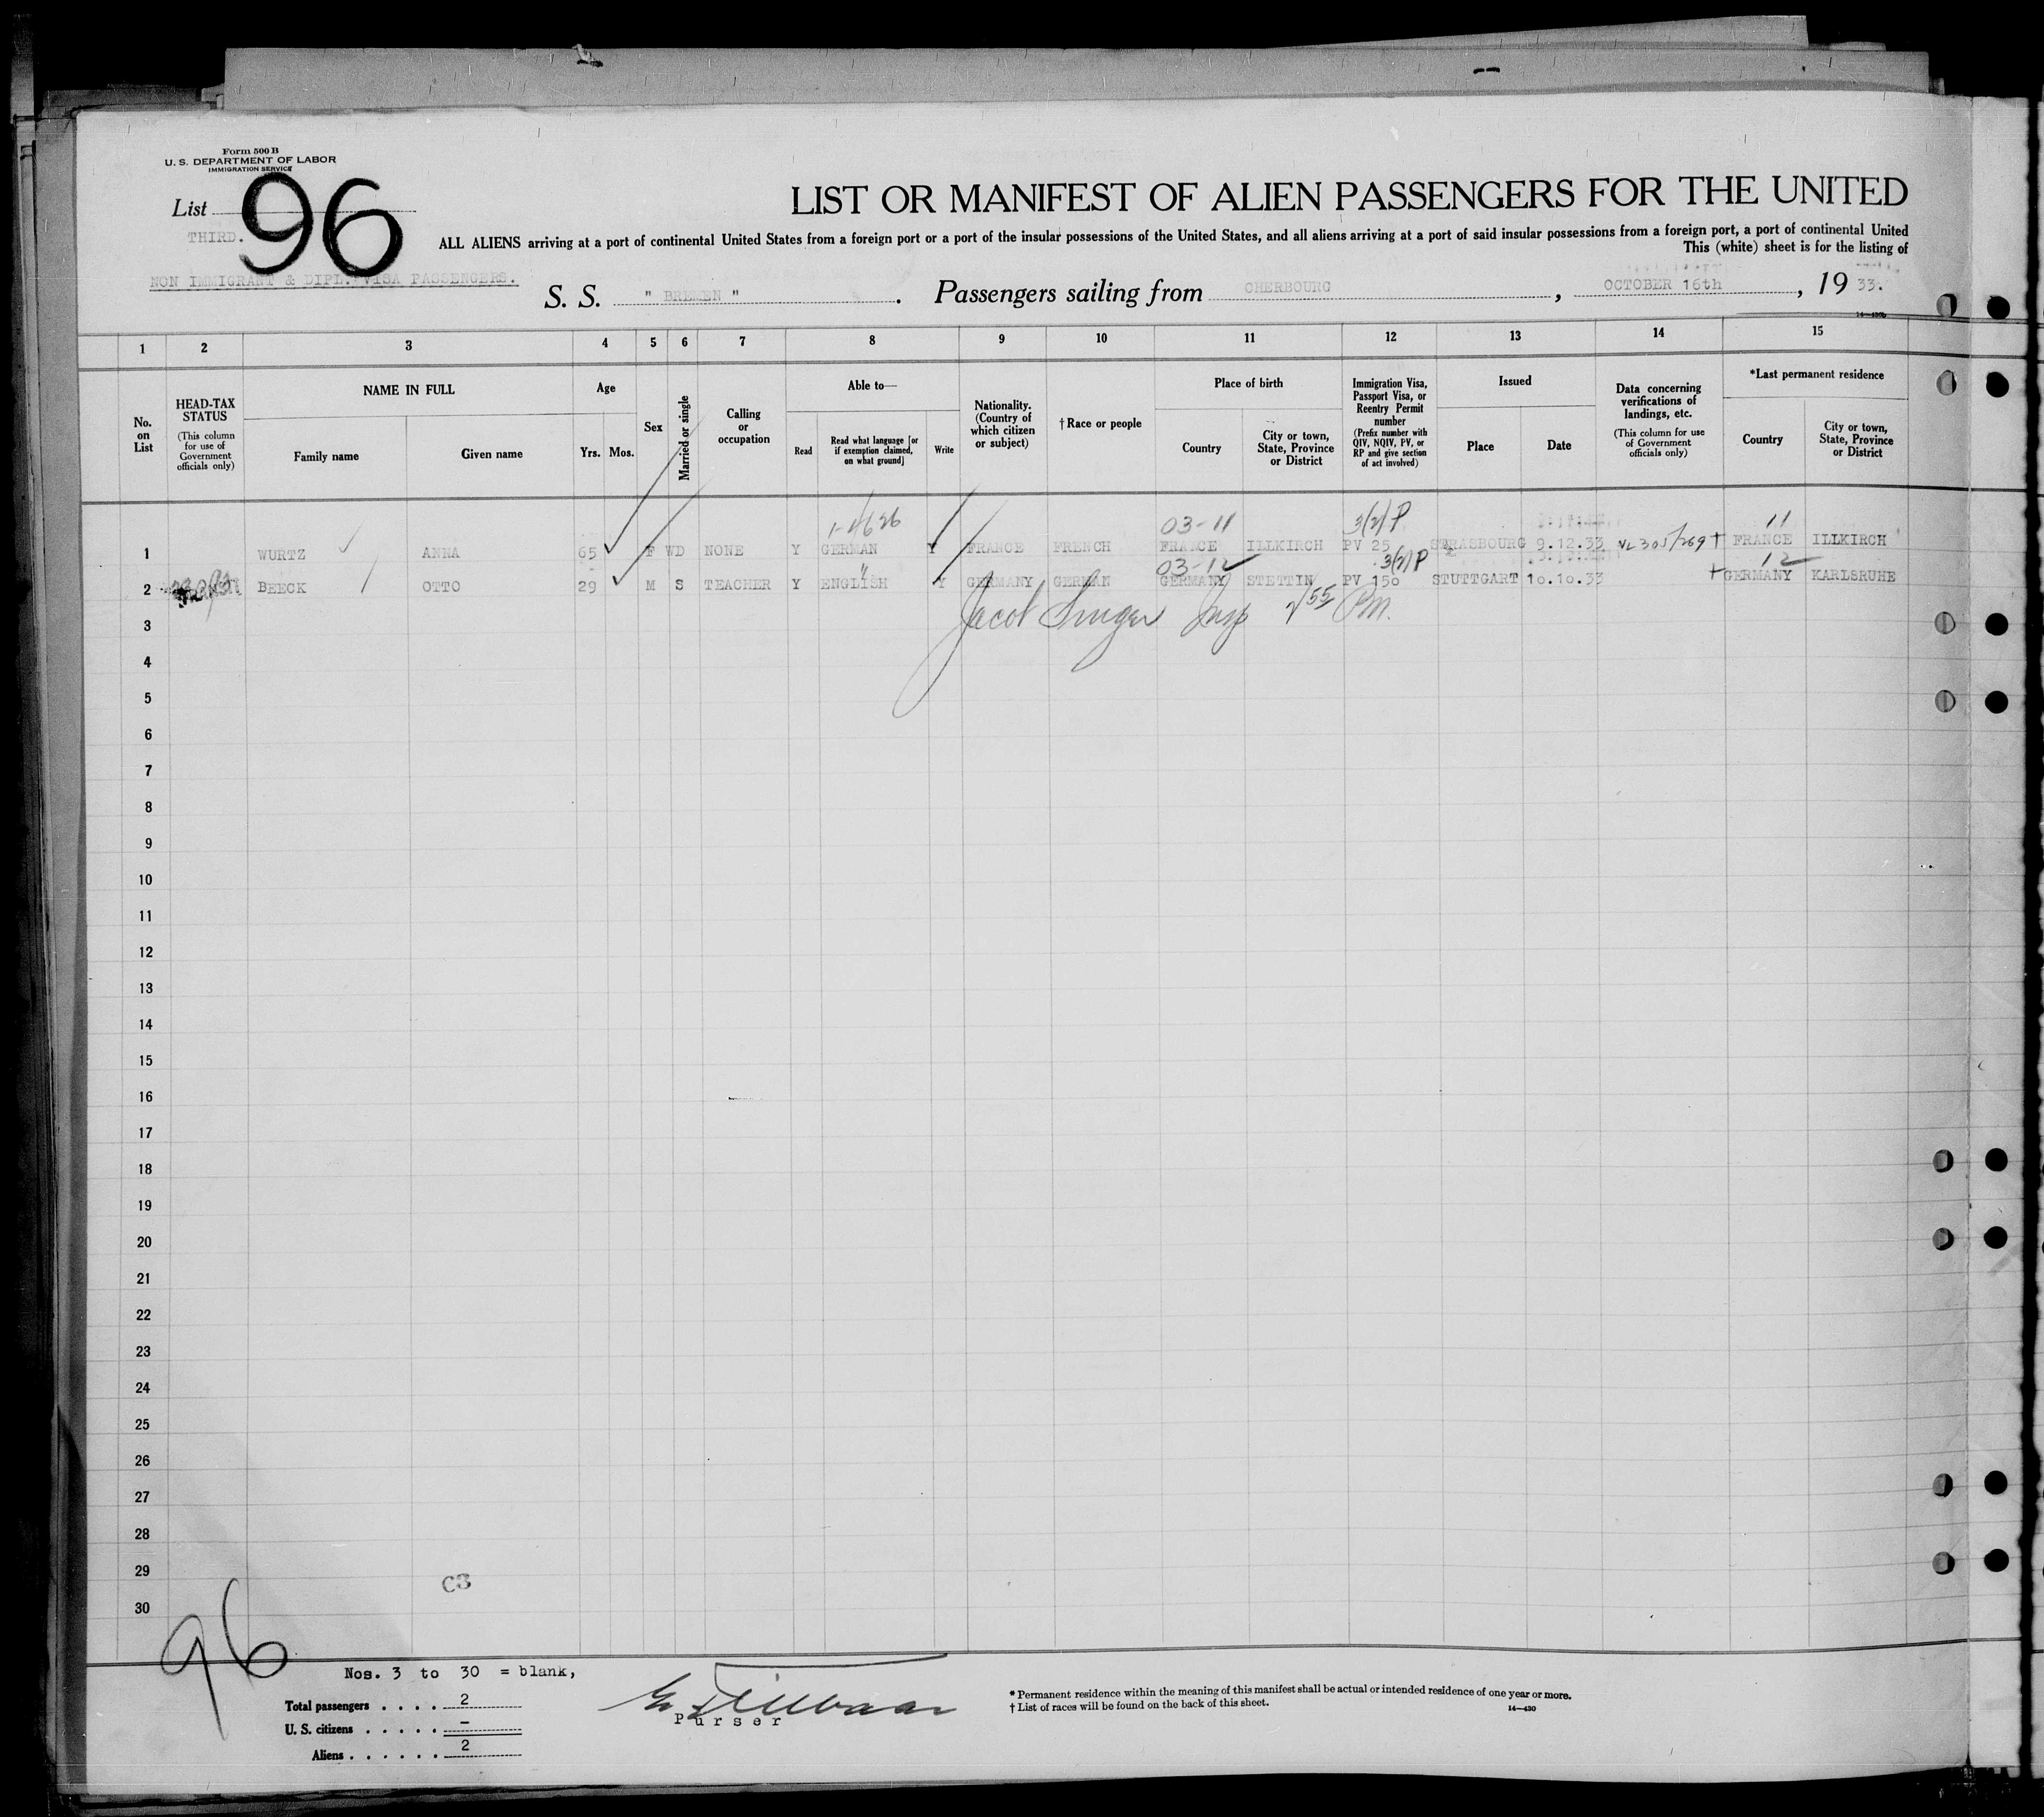 Form 500 B
U. S. DEPARTMENT OF LABOR
IMMIGRATION SERVICE
List 96
THIRD.
NON IMMIGRANT & DIPL. VISA PASSENGERS.
LIST OR MANIFEST OF ALIEN PASSENGERS FOR THE UNITED
ALL ALIENS arriving at a port of continental United States from a foreign port or a port of the insular possessions of the United States, and all aliens arriving at a port of said insular possessions from a foreign port, a port of continental United
This (white) sheet is for the listing of
S. S. " BREMEN " . Passengers sailing from CHERBOURG , OCTOBER 16th , 19 33.
14—430b
1 2 3 4 5 6 7 8 9 10 11 12 13 14 15
No. on List
HEAD-TAX STATUS (This column for use of Government officials only)
NAME IN FULL
Family name
Given name
Age
Yrs. Mos.
Sex
Married or single
Calling or occupation
Able to—
Read
Read what language [or if exemption claimed, on what ground]
Write
Nationality. (Country of which citizen or subject)
†Race or people
Place of birth
Country
City or town, State, Province or District
Immigration Visa, Passport Visa, or Reentry Permit number (Prefix number with QIV, NQIV, PV, or RP and give section of act involved)
Issued
Place
Date
Data concerning verifications of landings, etc. (This column for use of Government officials only)
*Last permanent residence
Country
City or town, State, Province or District
03-11 3(2)P 11
1 WURTZ ANNA 65 F WD NONE Y GERMAN Y FRANCE FRENCH FRANCE ILLKIRCH PV 25 STRASBOURG 9.12.33 VL 305/269 + FRANCE ILLKIRCH
03-12 3(2)P 12
2 BEECK OTTO 29 M S TEACHER Y ENGLISH Y GERMANY GERMAN GERMANY STETTIN PV 150 STUTTGART 10.10.33 + GERMANY KARLSRUHE
3 Jacob Singer Insp 2 55 PM.
4
5
6
7
8
9
10
11
12
13
14
15
16
17
18
19
20
21
22
23
24
25
26
27
28
29 C3
30
96
Nos. 3 to 30 = blank,
Total passengers . . . . 2
U. S. citizens . . . . . –
Aliens . . . . . . 2
Purser
* Permanent residence within the meaning of this manifest shall be actual or intended residence of one year or more.
† List of races will be found on the back of this sheet.
14—430